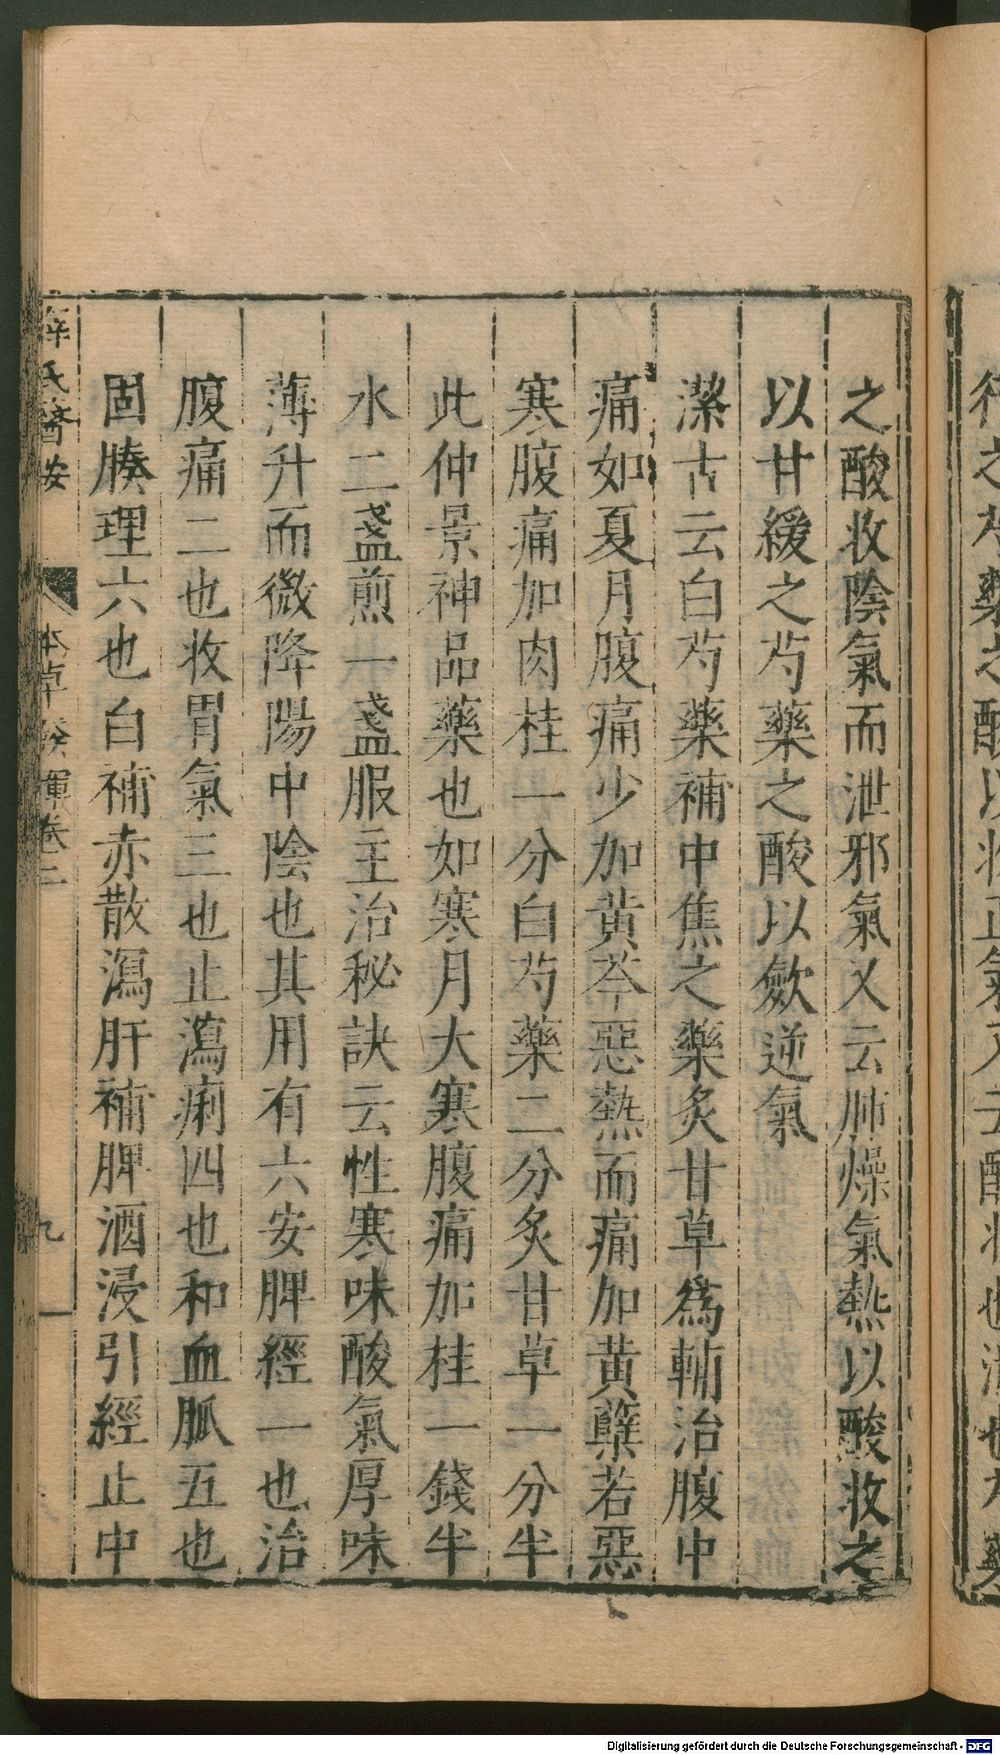 之酸收陰氣而泄邪氣又云肺燥氣熱以酸收之
以甘緩之芍藥之酸以歛逆氣
潔古云白芍藥補中焦之藥炙甘草爲輔治腹中
痛如夏月腹痛少加黄芩惡熱而痛加黄蘗若惡
寒腹痛加肉桂一分白芍藥二分炙甘草一分半
此仲景神品藥也如寒月大寒腹痛加桂一錢半
水二盞煎一盞服主治秘訣云性寒味酸氣厚味
薄升而微降陽中陰也其用有六安脾經一也治
腹痛二也收胃氣三也止瀉痢四也和血脈五也
固腠理六也白補赤散瀉肝補脾酒浸引經止中
薛氏醫案 本草發揮卷二 九
Digitalisierung gefördert durch die Deutsche Forschungsgemeinschaft - DFG